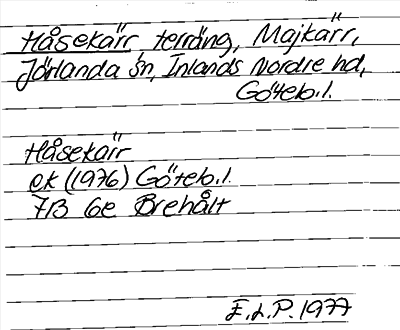 Håsekärr, terräng, Majkärr,
Jörlanda sn, Inlands Nordre hd,
Göteb.l.
Håsekärr
ek (1976) Göteb.l.
7B 6e Brehålt
E.L.P. 1977